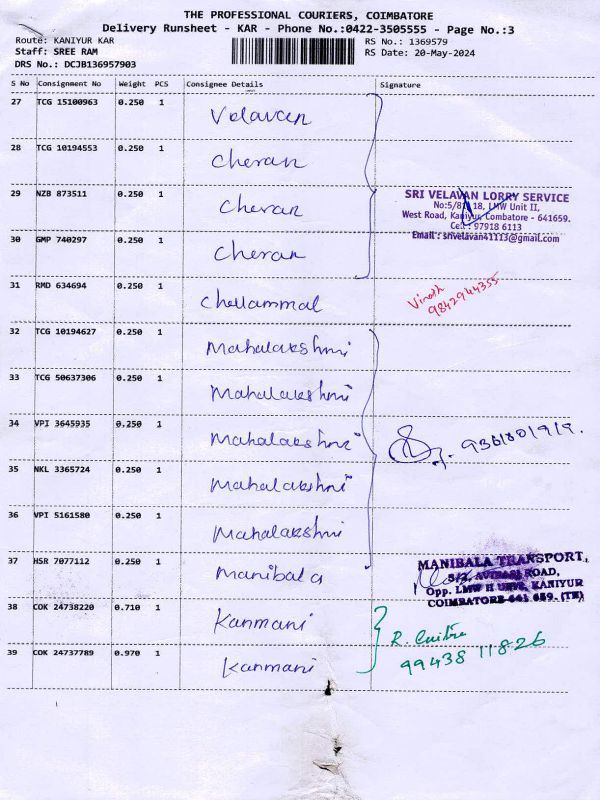 THE PROFESSIONAL COURIERS, COIMBATORE
Delivery Runsheet - KAR - Phone No.:0422-3505555 - Page No.:3
Route: KANIYUR KAR
RS No.: 1369579
Staff: SREE RAM
RS Date: 20-May-2024
DRS No.: DCJB136957903
S No Consignment No Weight PCS Consignee Details Signature
27 TCG 15100963 0.250 1 Velavan
28 TCG 10194553 0.250 1 Cheran
29 NZB 873511 0.250 1 Cheran
SRI VELAVAN LORRY SERVICE
No:5/ 18, LMW Unit II,
West Road, Kaniyur, Combatore - 641659.
Cell : 97918 6113
Email : srivelavan41113@gmail.com
30 GMP 740297 0.250 1 Cheran
31 RMD 634694 0.250 1 Chellammal
Vinoth
9842944355
32 TCG 10194627 0.250 1 Mahalakshmi
33 TCG 50637306 0.250 1 Mahalakshmi
34 VPI 3645935 0.250 1 Mahalakshmi
35 NKL 3365724 0.250 1 Mahalakshmi
36 VPI 5161580 0.250 1 Mahalakshmi
37 HSR 7077112 0.250 1 Manibala
MANIBALA TRANSPORT,
ROAD,
Opp. LMW II UNIT, KANIYUR
COIMBATORE-641 659. (TN)
38 COK 24738220 0.710 1 Kanmani
R.
99438 11826
39 COK 24737789 0.970 1 Kanmani